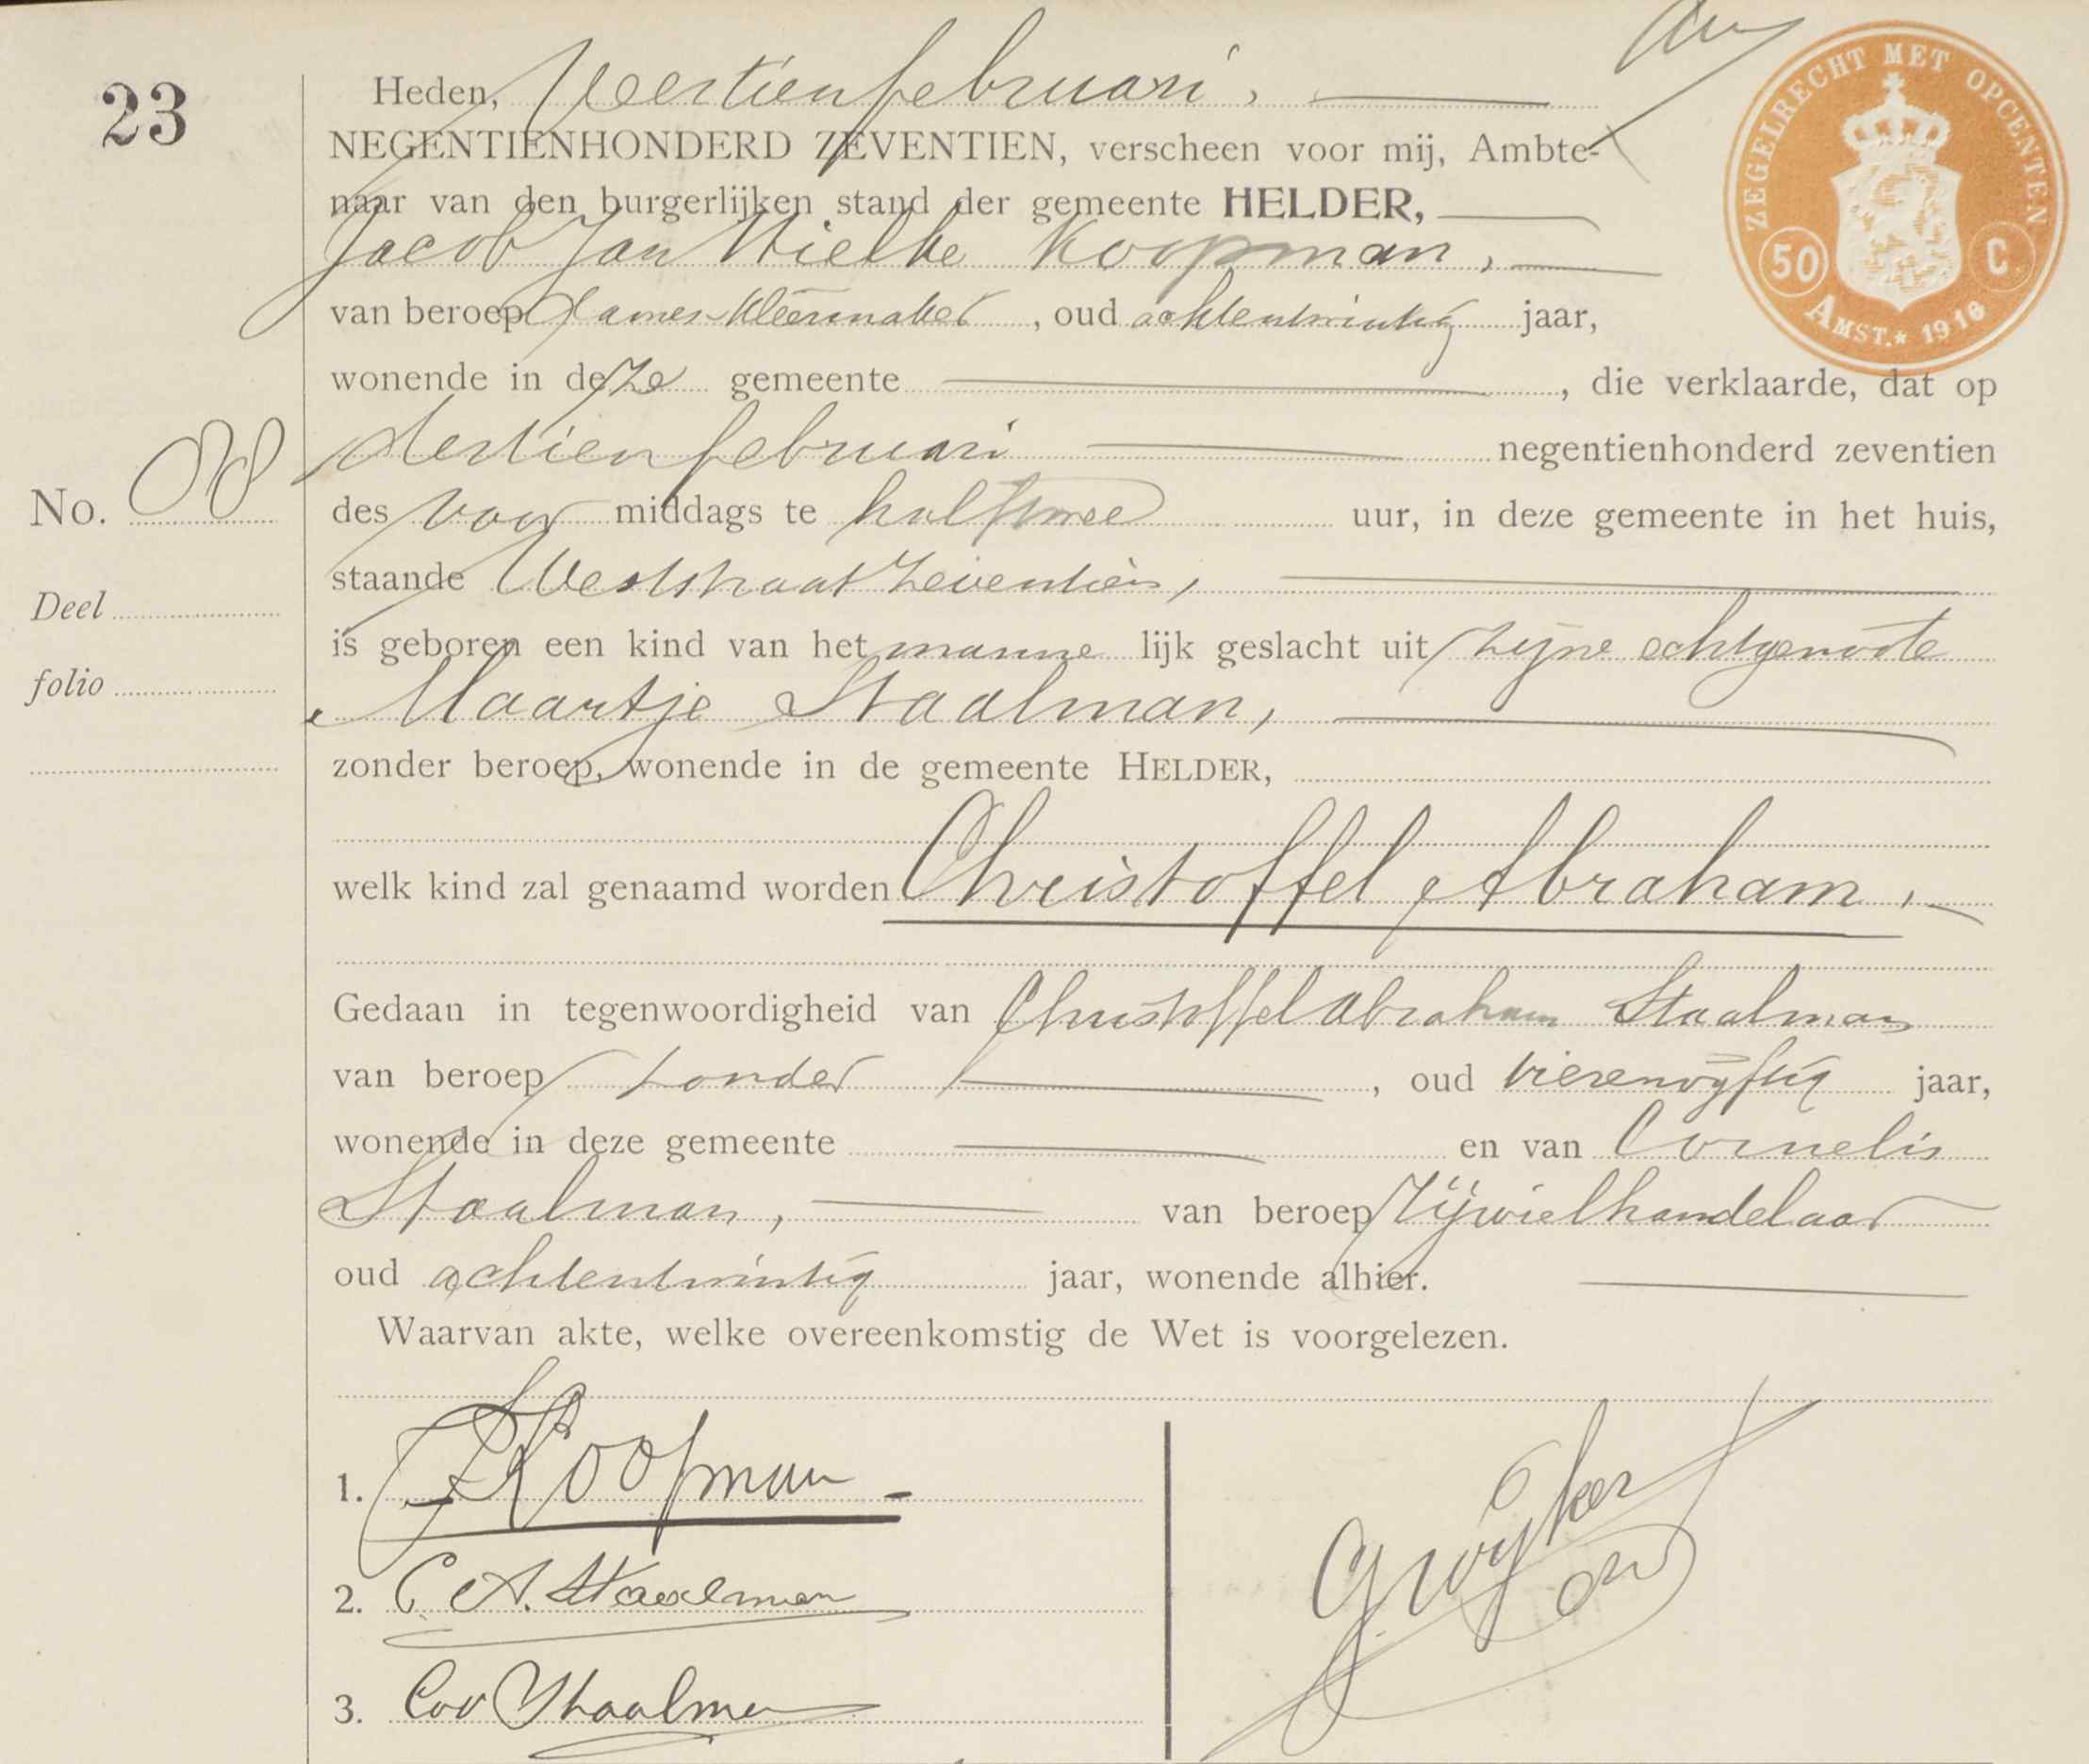 23
Heden, Veertien februari,
NEGENTIENHONDERD ZEVENTIEN, verscheen voor mij, Ambte-
naar van den burgerlijken stand der gemeente HELDER,
Jacob Jan Koopman,
van beroep dames-kleermaker, oud achtentwintig jaar,
wonende in deze gemeente, die verklaarde, dat op
dertien februari negentienhonderd zeventien
No.
des voor middags te half twee uur, in deze gemeente in het huis,
staande Weststraat zeventien,
Deel
is geboren een kind van het manne lijk geslacht uit zijne echtgenoote
folio
Maartje Staalman,
zonder beroep, wonende in de gemeente HELDER,
welk kind zal genaamd worden Christoffel Abraham,
Gedaan in tegenwoordigheid van Christoffel Abraham Staalman
van beroep zonder, oud vierenvijftig jaar,
wonende in deze gemeente en van Cornelis
Staalman, van beroep Rijwielhandelaar
oud achtentwintig jaar, wonende alhier.
Waarvan akte, welke overeenkomstig de Wet is voorgelezen.
1. Koopman
2. C. A. Staalman
3. Cor Staalman
ZEGELRECHT MET OPCENTEN
50 C.
AMST. * 1916